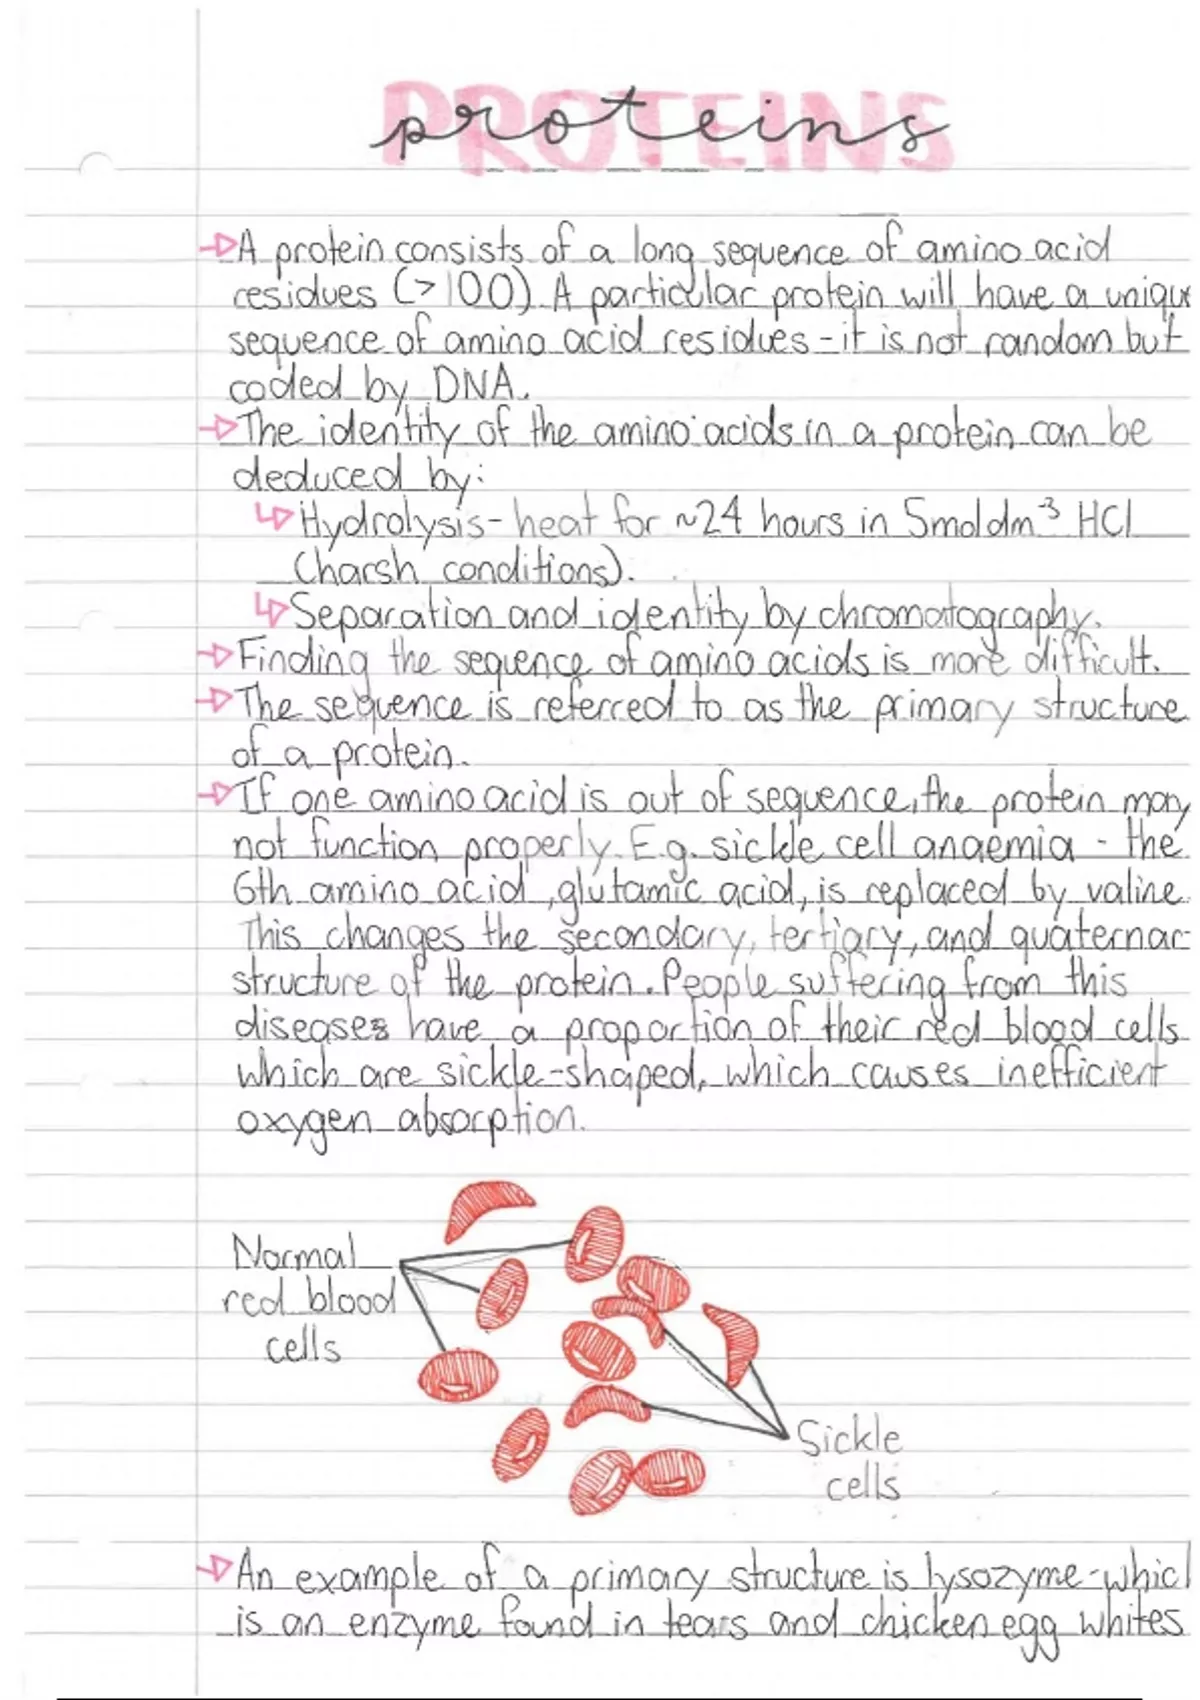 PROTEINS
proteins
A protein consists of a long sequence of amino acid
residues (>100). A particular protein will have a uniqu
sequence of amino acid residues - it is not random but
coded by DNA.
The identity of the amino acids in a protein can be
deduced by:
Hydrolysis - heat for ~24 hours in 5moldm⁻³ HCl
(harsh conditions).
Separation and identity by chromatography.
Finding the sequence of amino acids is more difficult.
The sequence is referred to as the primary structure
of a protein.
If one amino acid is out of sequence, the protein may
not function properly. E.g. sickle cell anaemia - the
6th amino acid, glutamic acid, is replaced by valine.
This changes the secondary, tertiary, and quaternar
structure of the protein. People suffering from this
diseases have a proportion of their red blood cells
which are sickle-shaped, which causes inefficient
oxygen absorption.
Normal
red blood
cells
Sickle
cells
An example of a primary structure is lysozyme - whic
is an enzyme found in tears and chicken egg whites